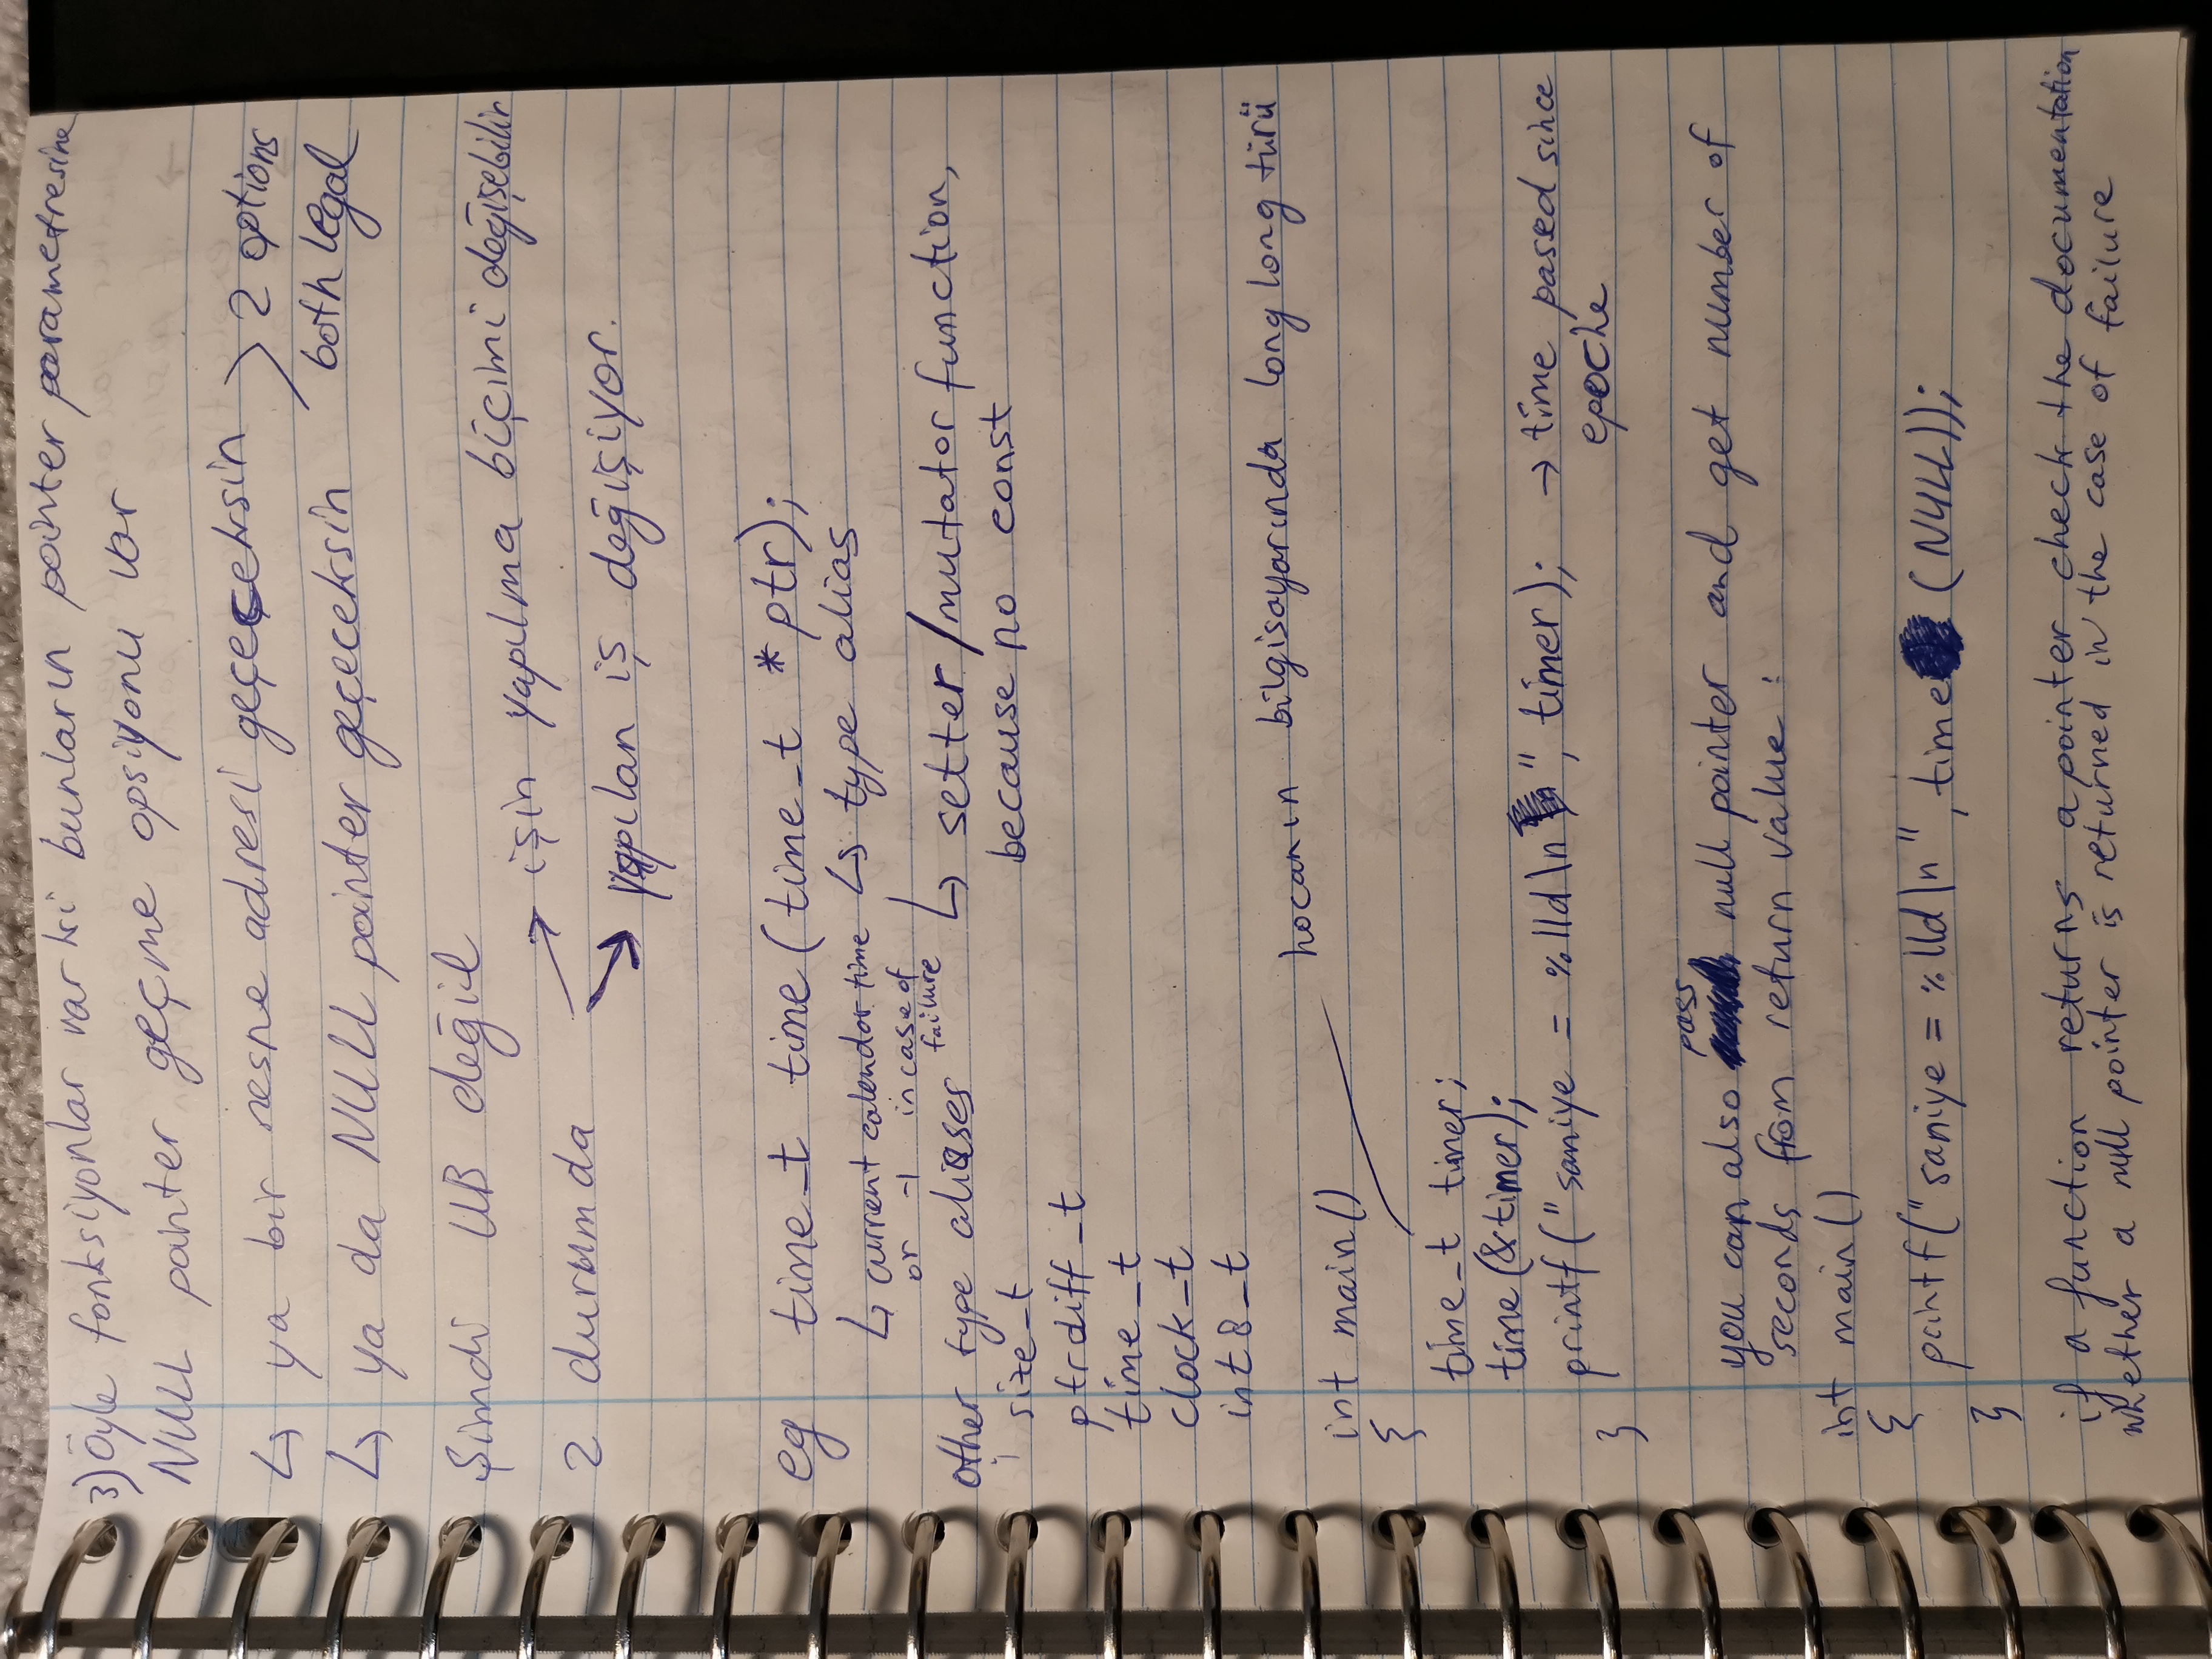 3) Öyle fonksiyonlar var ki bunların pointer parametresine
NULL pointer geçme opsiyonu var
↳ ya bir nesne adresi geçeceksin
↳ ya da NULL pointer geçeceksin
> 2 options
both legal
Şimdi UB değil
2 durumda
→ işin yapılma biçimi değişebilir
→ yapılan iş değişiyor.
eg time_t time (time_t *ptr);
↳ current calendar time
or -1 in case of
failure
↳ type alias
↳ setter/mutator function,
because no const
other type aliases
size_t
ptrdiff_t
time_t
clock_t
int8_t
hocanın bilgisayarında long long türü
int main()
{
time_t timer;
time (&timer);
printf("saniye = %lld\n", timer); → time pased since
epoche
}
you can also pass null pointer and get number of
seconds from return value :
int main()
{
printf("saniye = %lld\n", time (NULL));
}
if a function returns a pointer check the documentation
whether a null pointer is returned in the case of failure